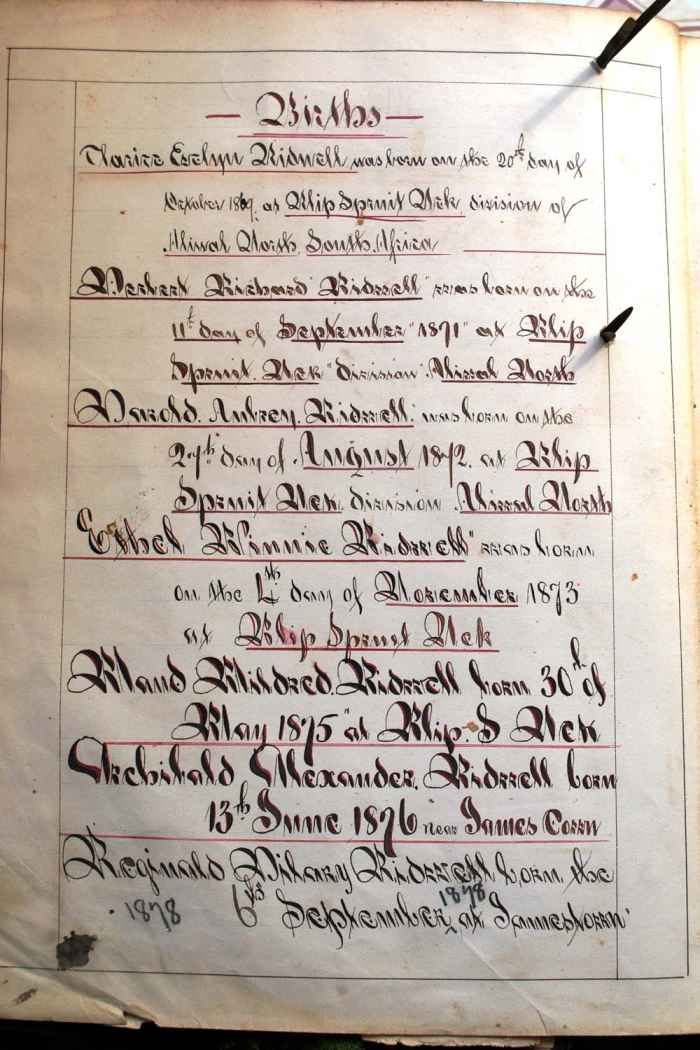 — Births —
Clarice Evelyn Kidwell was born on the 20th day of
October 1869. at Klip Spruit Nek division of
Aliwal North, South Africa
Herbert Richard Kidwell" was born on the
11th day of September "1871" at Klip
Spruit. Nek "division". Aliwal North
Harold. Aubrey. Kidwell. was born on the
27th day of. August 1872. at Klip
Spruit Nek. division. Aliwal North
Ethel Winnie Kidwell" was born
on the 4th day of November 1873
at Klip Spruit Nek
Maud Mildred. Kidwell born 30th of
May 1875 "at Klip. S Nek
Archibald Alexander. Kidwell born
13th June 1876 near James Town
Reginald Hilary Kidwell born the
6th September 1878 at Jamestown"
1878